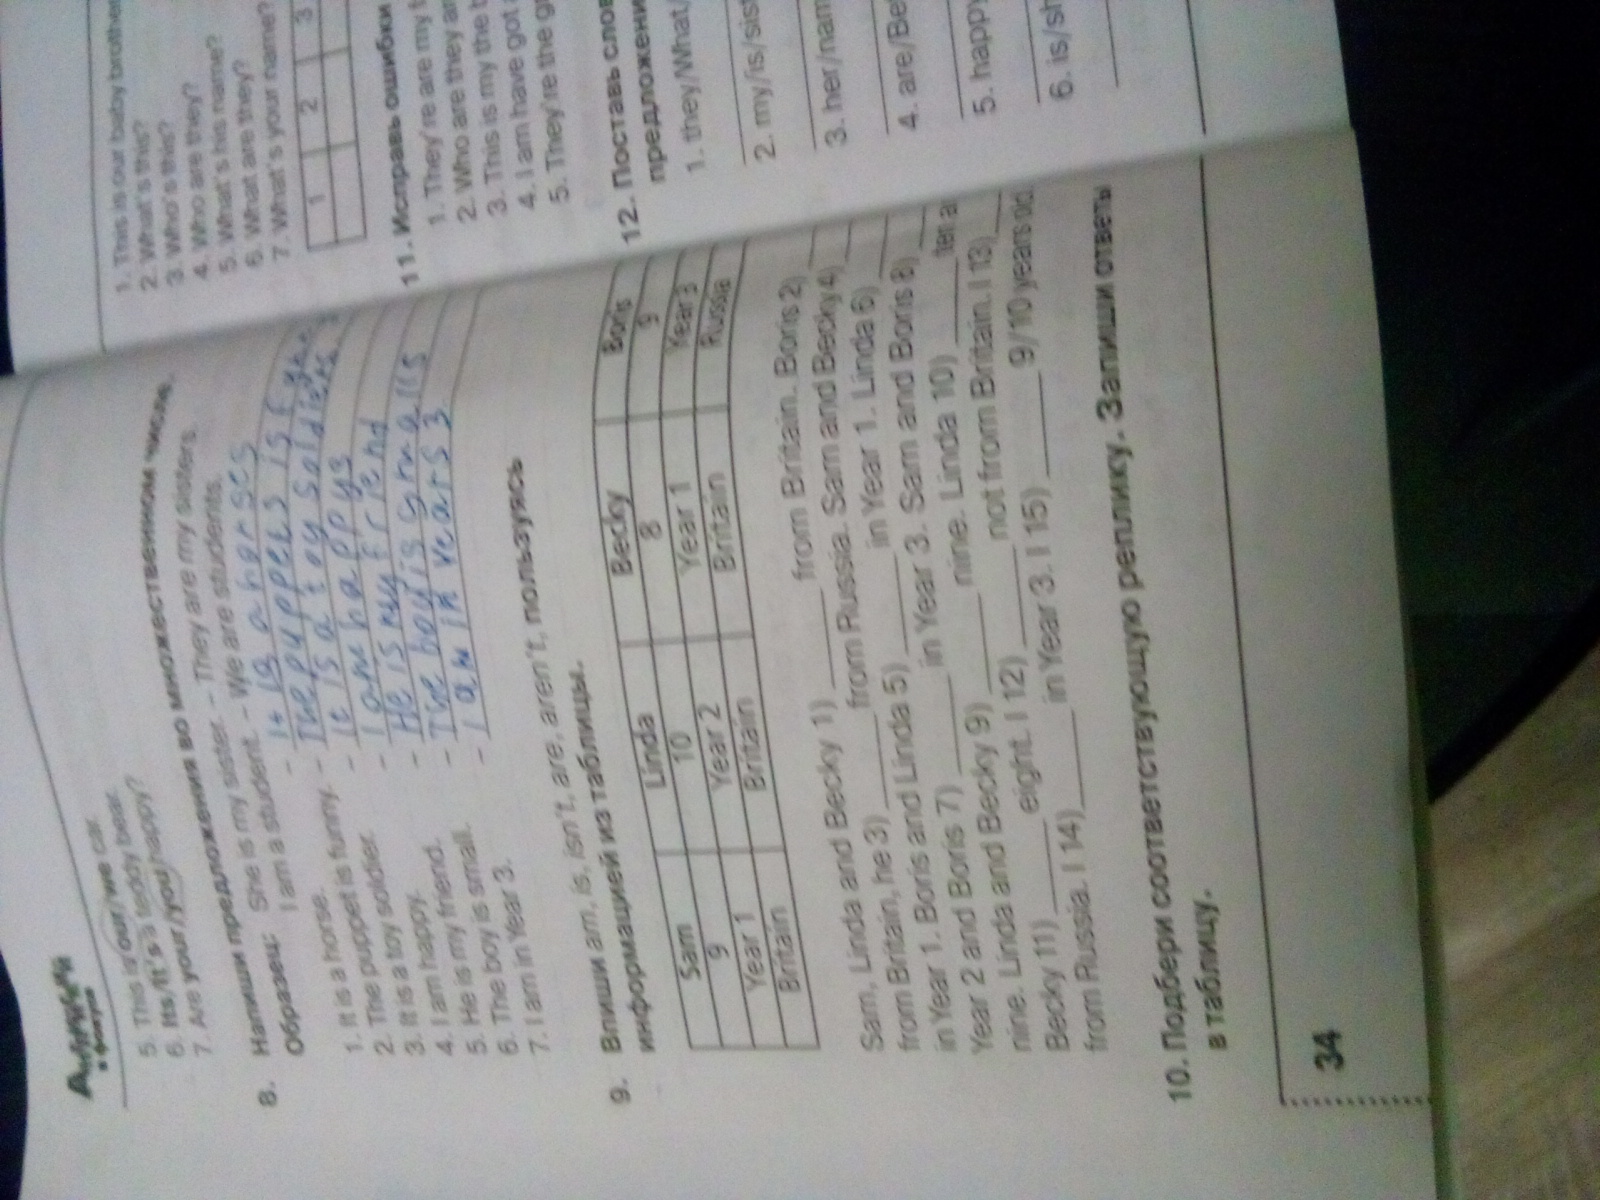 5. This is our/we car.
6. Its/It's a teddy bear.
7. Are your/you happy?
8. Напиши предложения во множественном числе.
Образец: She is my sister. - They are my sisters.
I am a student. - We are students.
1. It is a horse. - It is a horses
2. The puppet is funny. - The puppees is
3. It is a toy soldier. - it is a toy soldiers
4. I am happy. - I am happys
5. He is my friend. - He is my friend
6. The boy is small. - The boy is smalls
7. I am in Year 3. - I am in years 3
9. Впиши am, is, isn't, are, aren't, пользуясь
информацией из таблицы.
Sam Linda Becky Boris
9 10 8 9
Year 1 Year 2 Year 1 Year 3
Britain Britain Britain Russia
Sam, Linda and Becky 1) ______ from Britain. Boris 2) ___
from Britain, he 3) ______ from Russia. Sam and Becky 4) ___
in Year 1. Boris and Linda 5) ______ in Year 1. Linda 6) ___
Year 2 and Boris 7) ______ in Year 3. Sam and Boris 8) ___
nine. Linda and Becky 9) ______ nine. Linda 10) ______ ten
Becky 11) ______ eight. I 12) ______ not from Britain. I 13) ___
from Russia. I 14) ______ in Year 3. I 15) ______ 9/10 years old.
10. Подбери соответствующую реплику. Запиши ответы
в таблицу.
34
1. This is our baby brother
2. What's this?
3. Who's this?
4. Who are they?
5. What's his name?
6. What are they?
7. What's your name?
1 2 3
11. Исправь ошибки
1. They're are my
2. Who are they
3. This is my the
4. I am have got
5. They're the
12. Поставь
1. they/What/
2. my/is/
3. her/
4. are/
5. happy
6. is/